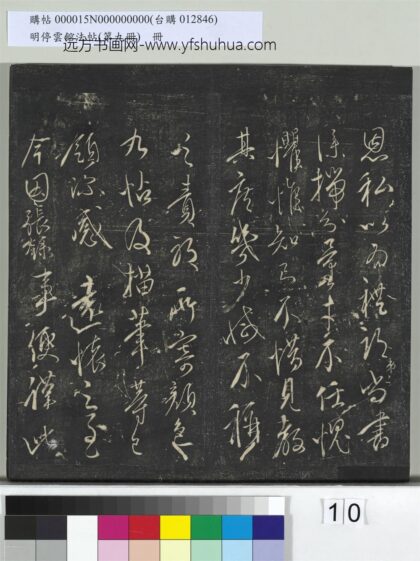 購帖 000015N000000000(台購 012846)
明停雲館法帖(第九冊) 冊
远方书画网-www.yfshuhua.com
恩私以為禮部尚書
深揣分量末不任愧
懼惟知馬不惜見教
其庶幾少減不稱
之責耶所寄顏色
九帖及描筆等已
領珍感遠懷之至
今因張祿事便謹此
10